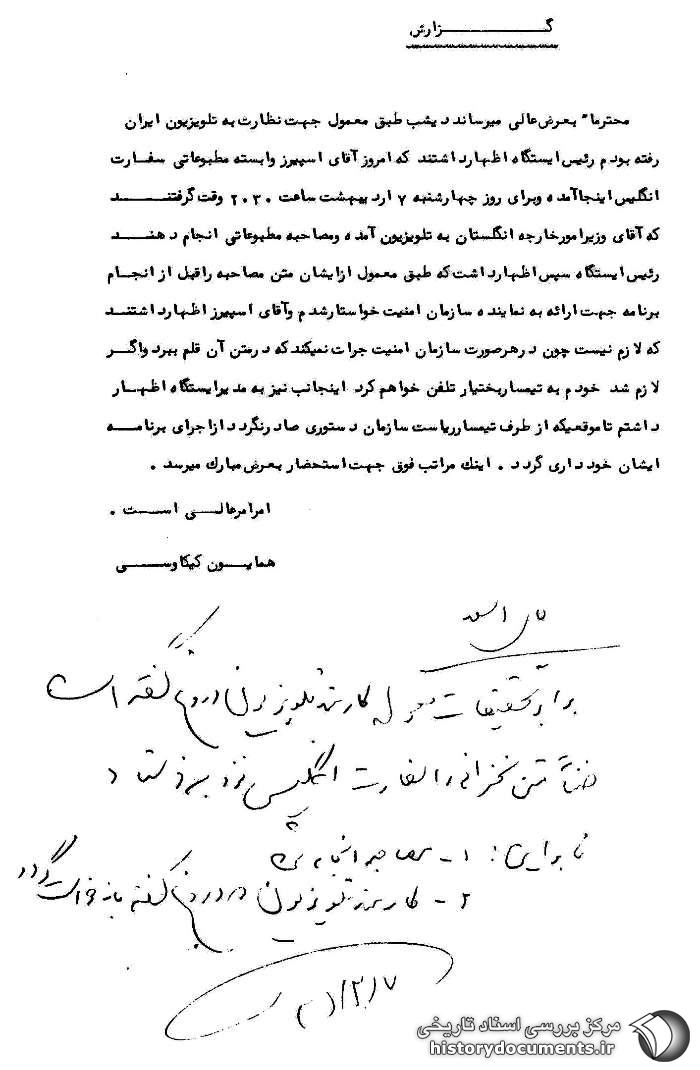 گـــــــزارش
محترما" بعرض‌عالی میرساند دیشب طبق معمول جهت نظارت به تلویزیون ایران
رفته بودم رئیس ایستگاه اظهارداشتند که امروز آقای اسپیرز وابسته مطبوعاتی سفارت
انگلیس اینجا آمده وبرای روز چهارشنبه ۷ اردیبهشت ساعت ۲۰۳۰ وقت گرفتنـــــد
که آقای وزیرامورخارجه انگلستان به تلویزیون آمده ومصاحبه مطبوعاتی انجام دهنـــد
رئیس ایستگاه سپس اظهارداشت که طبق معمول ازایشان متن مصاحبه راقبل از انجـام
برنامه جهت ارائه به نماینده سازمان امنیت خواستارشدم وآقای اسپیرز اظهارداشتنـد
که لازم نیست چون درهرصورت سازمان امنیت جرات نمیکند که درمتن آن قلم ببرد واگـر
لازم شد خودم به تیمساربختیار تلفن خواهم کرد اینجانب نیز به مدیرایستگاه اظهـار
داشتم تاموقعیکه از طرف تیمسارریاست سازمان دستوری صادرنگردد ازاجرای برنامـــه
ایشان خودداری گردد . اینك مراتب فوق جهت استحضار بعرض مبارك میرسد .
امرامرعالـــی اســـت .
همایـــون کیکاوســـی
برابر تحقیقات معموله کارمند تلویزیون دروغ گفته است
ضمناً متن سخنرانی را سفارت انگلیس نزد بنده فرستاد
بنابراین: ۱- مصاحبه انجام شد
۲- کارمند تلویزیون که دروغ گفته بازخواست گردد
مرکز بررسی اسناد تاریخی
historydocuments.ir